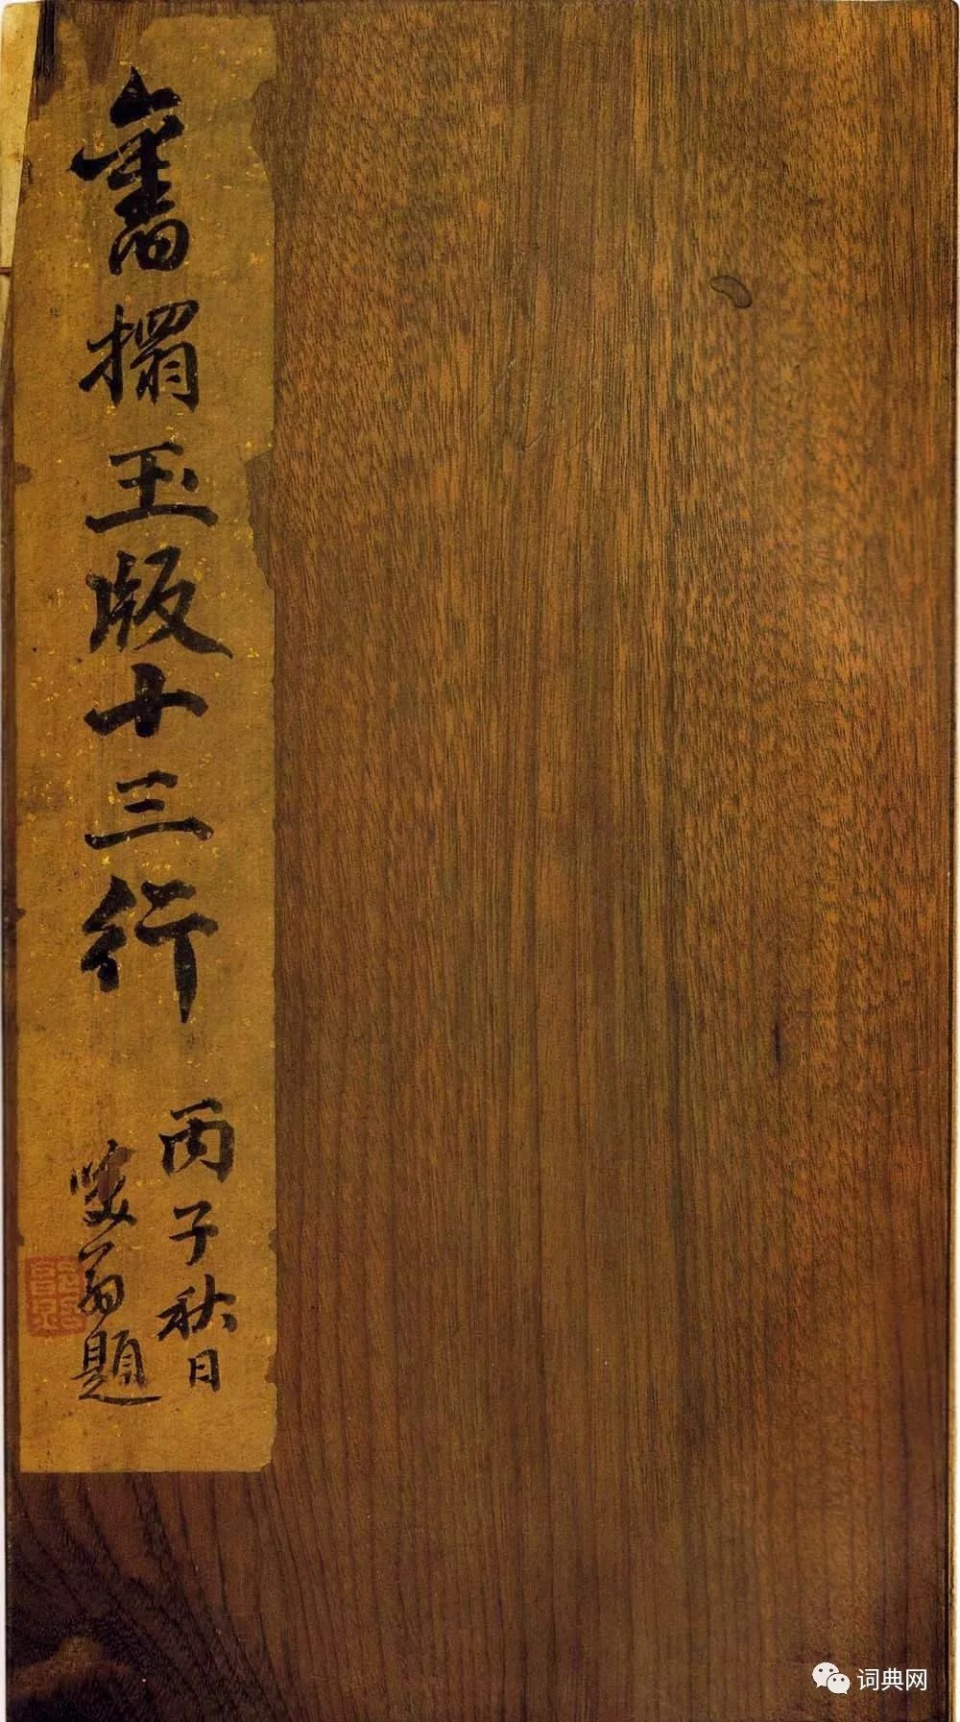 舊搨玉版十三行
丙子秋日
翁題
词典网